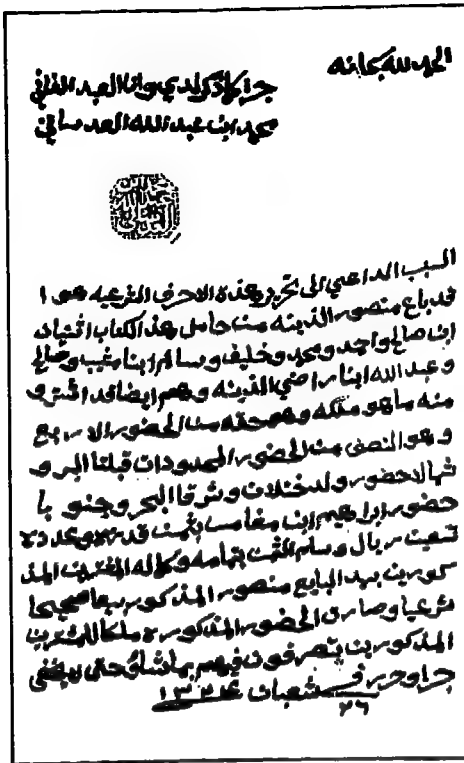 الحمد لله سبحانه
جرا كما ذكر لدي وانا العبد الفاني
محمد ابن عبد الله العدساني
السبب الداعي الى تحرير هذه الاحرف الشرعيه هو ا
قد باع منصور الذبنه من حامل هذا الكتاب اقنيان
ابن صالح واحمد ومحمد وخليف وسالم ابنا مثيب وصالح
وعبد الله ابنا راضي الذبنه وهم ايضا قد اشترو
منه ما هو ملكه وهو حقه من الحضور الاربع
وهو النصف من الحضور المحدودات قبلتا البر و
شمالا حضور ولد ختلان وشرقا البحر وجنوبا
حضور ابراهيم ابن مغامس بثمن قدره وعدده
تسعين ريال وسلم الثمن بتمامه وكماله المشترين المذ
كورين بيد البايع منصور المذكور بيعا صحيحا
شرعيا وصارت الحضور المذكوره ملكا للمشترين
المذكورين يتصرفون فيهم بما شاؤ حتى لا يخفى
جرا وحرر في ٢٦ شعبان ١٣٢٤